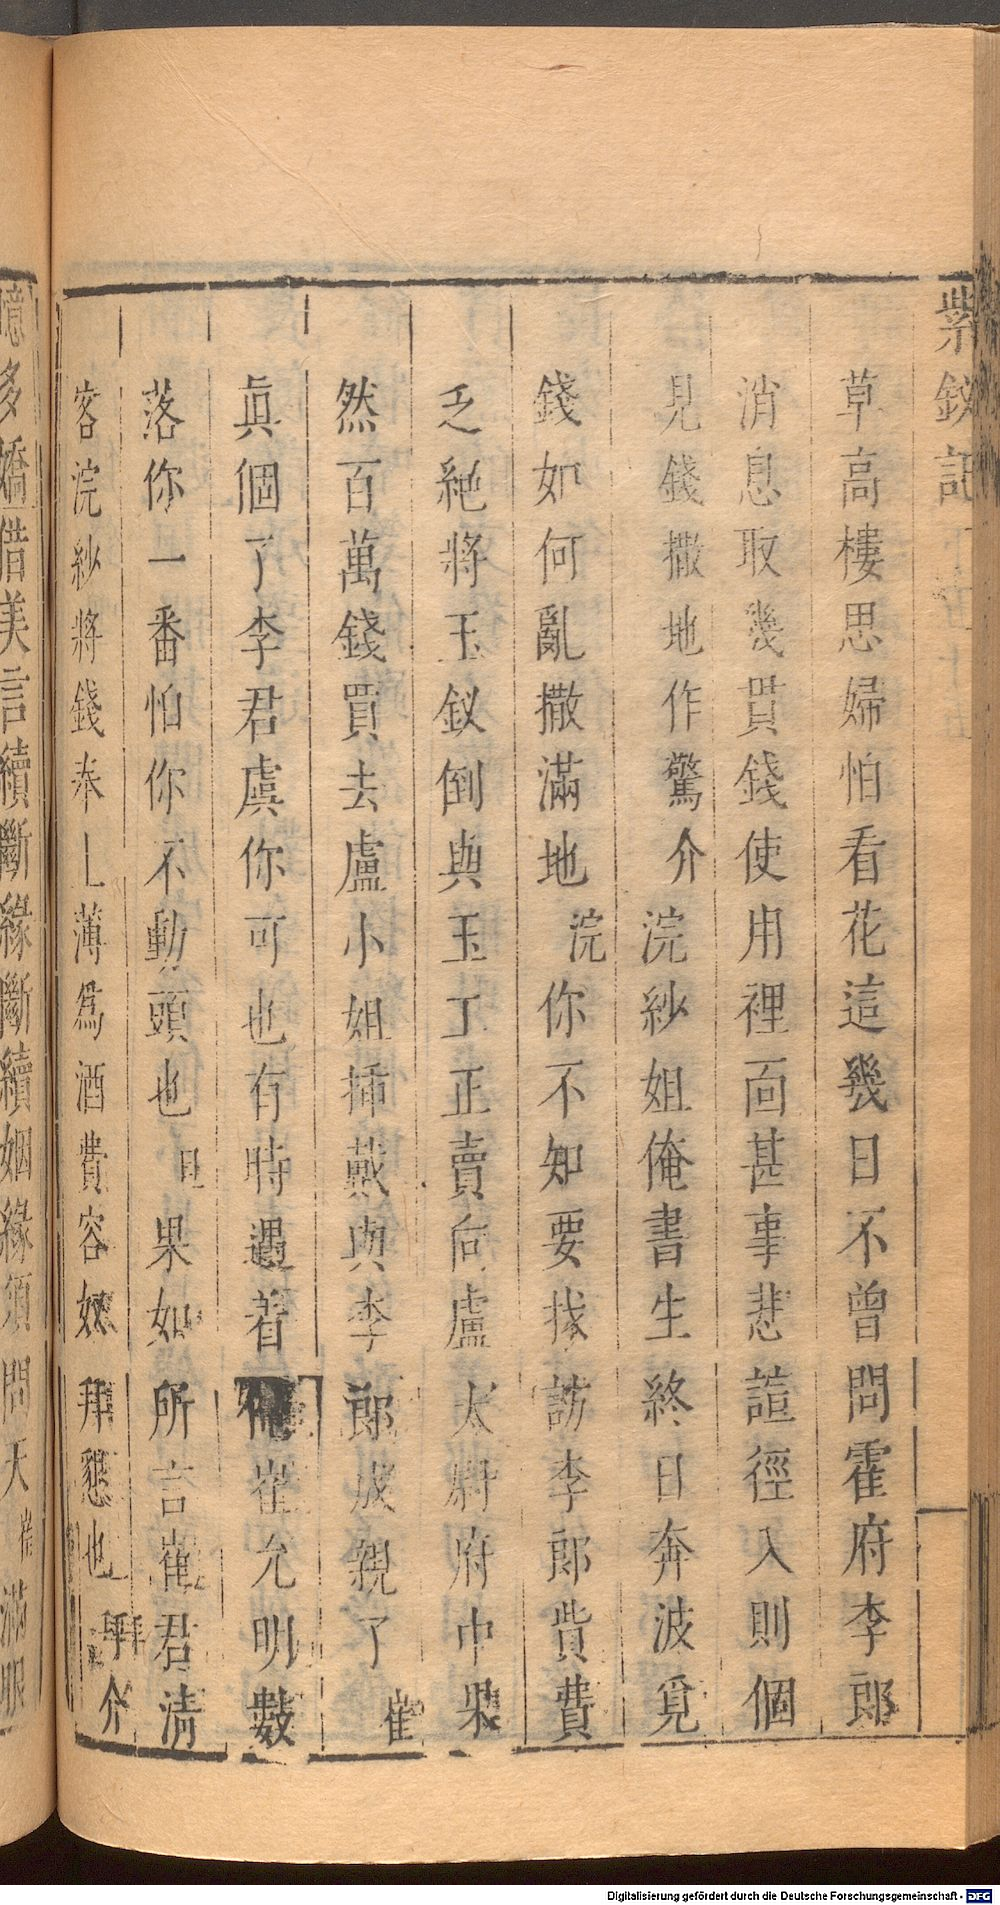 紫釵記
草高樓思婦怕看花這幾日不曾問霍府李郎
消息取幾貫錢使用裡面甚事悲諠徑入則個
見錢撒地作驚介浣紗姐俺書生終日奔波覓
錢如何亂撒滿地浣你不知要找訪李郎貲費
乏絕將玉釵倒與玉工正賣向盧太尉府中果
然百萬錢買去盧小姐揷戴與李郎成親了崔
眞個了李君虞你可也有時遇着俺崔允明數
落你一番怕你不動頭也旦果如所言崔君淸
客浣紗將錢奉上薄爲酒費容奴拜懇也拜介
憶多嬌借美言續斷緣斷續姻緣須問天崔滿眼
Digitalisierung gefördert durch die Deutsche Forschungsgemeinschaft - DFG